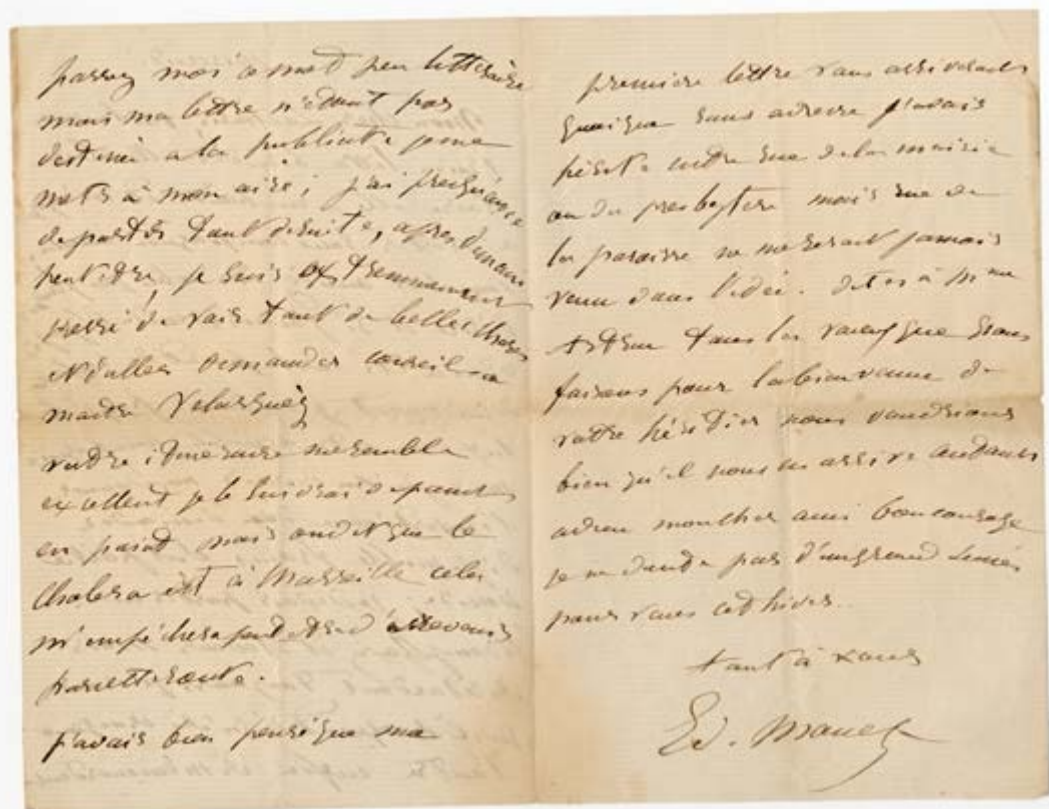 passez moi ce mot peu littéraire
mais ma lettre n'étant pas
destiné a la publicité je me
mets à mon aise; j'ai presqu'envie
de partir tout de suite, apres demain
peut etre, je suis extremement
pressé de voir tant de belles choses
et d'aller demander conseil a
maitre Velasquez
votre itineraire me semble
excellent je le suivrai de point
en point mais on dit que le
cholera est à Marseille cela
m'empêchera peut etre de revenir
par cette route.
j'avais bien pensé que ma
premiere lettre vous arriverait
quoique sans adresse j'avais
hésité entre rue de la mairie
ou du presbytere mais rue de
la paroisse ne me serait jamais
venu dans l'idée. dites à Mme
Astruc tous les vœux que nous
faisons pour la bienvenue de
votre héritier nous voudrions
bien qu'il nous en arrive autant
adieu mon cher ami bon courage
je ne doute pas d'un grand succès
pour vous cet hiver.
tout à vous
Ed. Manet